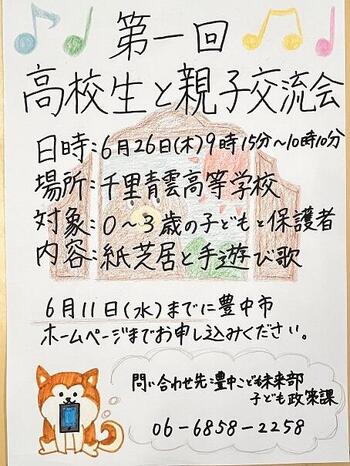 第一回
高校生と親子交流会
日時:6月26日(木)9時15分~10時10分
場所:千里青雲高等学校
対象:0~3歳の子どもと保護者
内容:紙芝居と手遊び歌
6月11日(水)までに豊中市
ホームページまでお申し込みください。
問い合わせ先:豊中こども未来部
子ども政策課
06-6858-2258